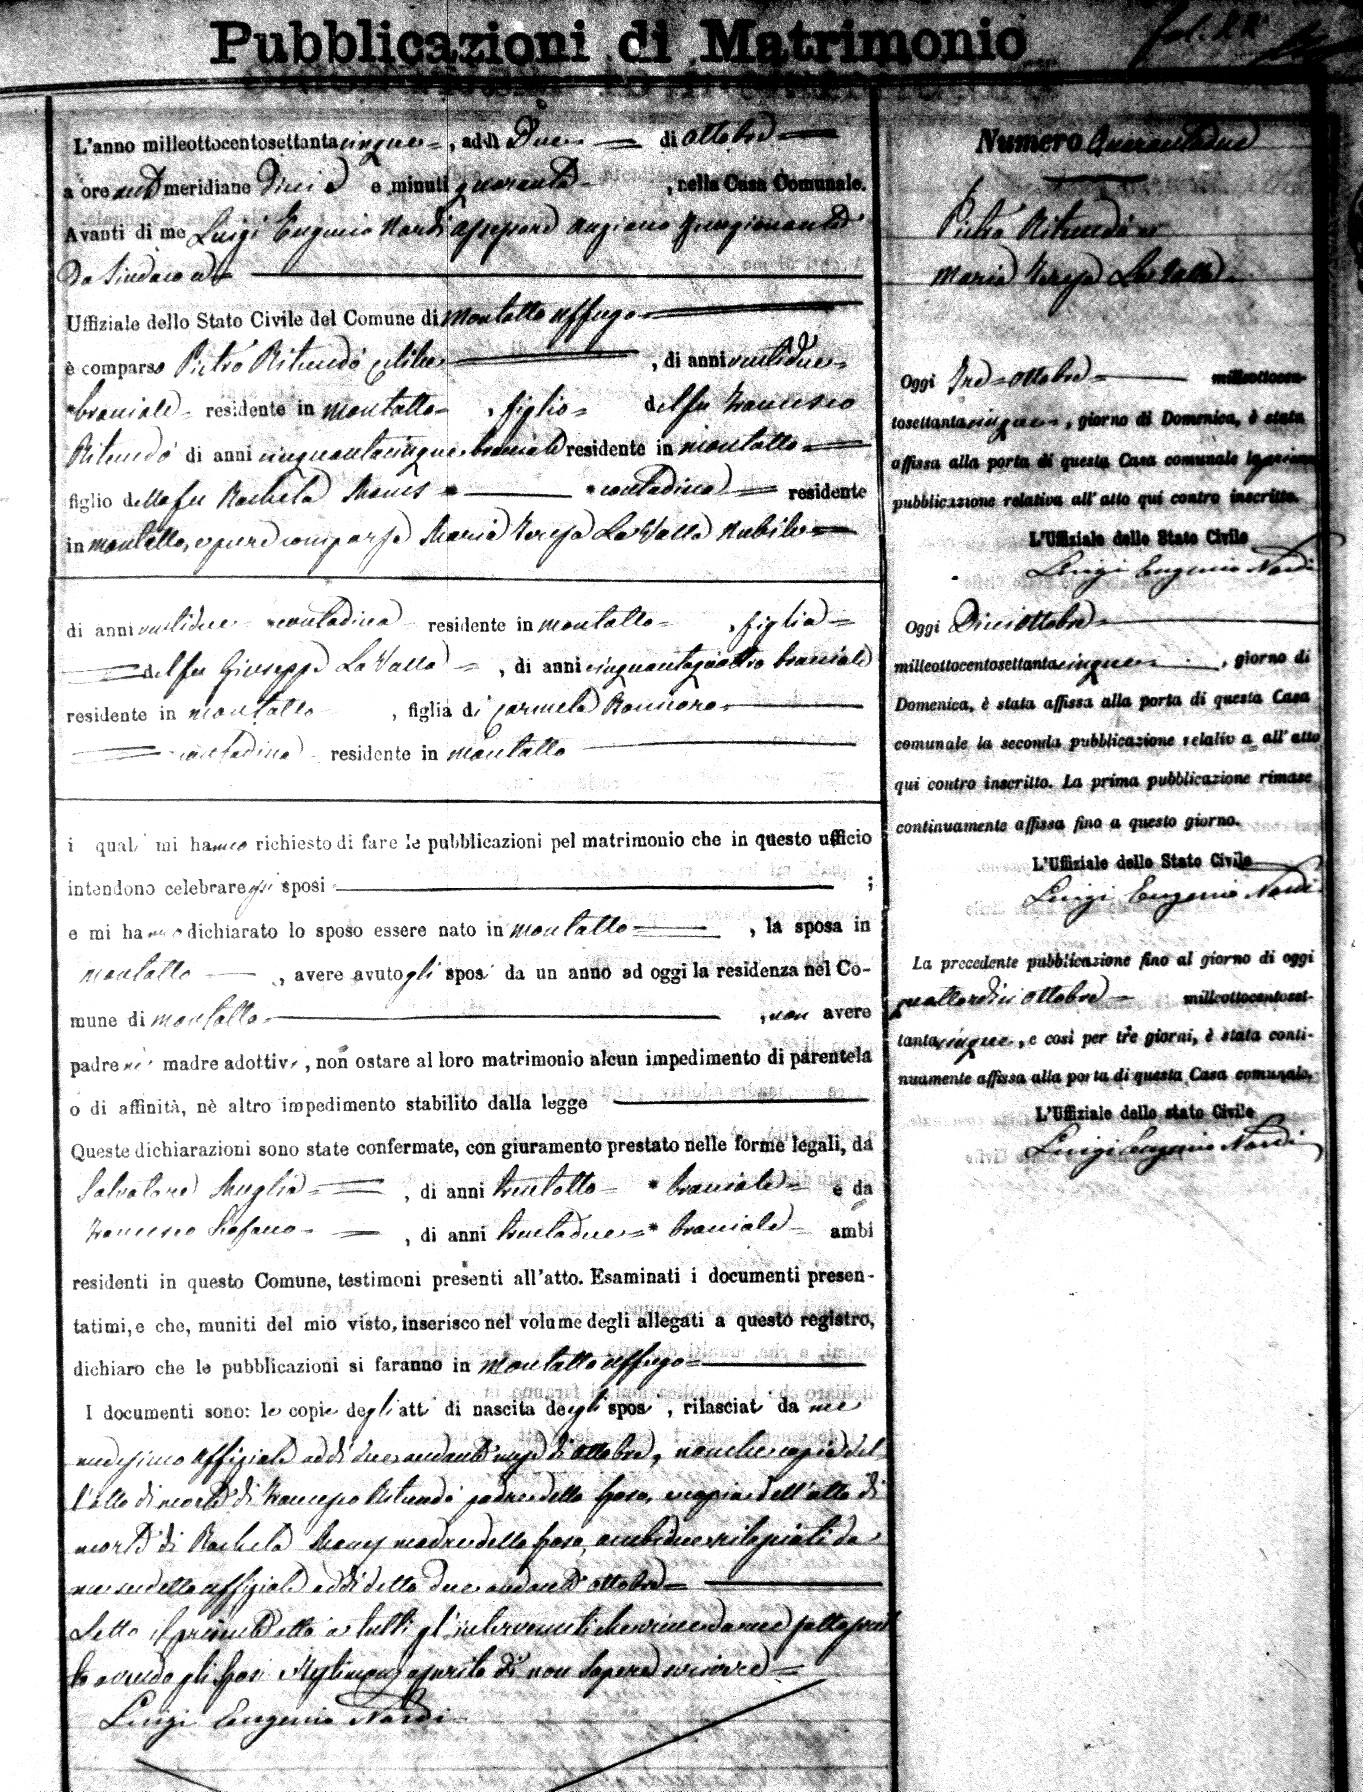 Pubblicazioni di Matrimonio
L'anno milleottocentosettantacinque, addì Due di ottobre
a ore anti meridiane Dieci e minuti quaranta, nella Casa Comunale.
Avanti di me Luigi Eugenio Nardi assessore anziano funzionante
Da Sindaco ed
Uffiziale dello Stato Civile del Comune di Montalto Uffugo
è comparso Pietro Ritundò celibe, di anni ventidue
bracciale residente in Montalto, figlio del fu Francesco
Ritundò di anni cinquantacinque bracciale residente in Montalto
figlio della fu Rachela contadina residente
in Montalto, e pure comparsa Maria Teresa La Valle Nubile
di anni ventidue contadina residente in Montalto, figlia
del fu Giuseppe La Valle, di anni cinquantaquattro bracciale
residente in Montalto, figlia di Carmela
contadina residente in Montalto
i quali mi hanno richiesto di fare le pubblicazioni pel matrimonio che in questo ufficio
intendono celebrare gli sposi ;
e mi hanno dichiarato lo sposo essere nato in Montalto, la sposa in
Montalto, avere avuto gli sposi da un anno ad oggi la residenza nel Co-
mune di Montalto, non avere
padre nè madre adottivi, non ostare al loro matrimonio alcun impedimento di parentela
o di affinità, nè altro impedimento stabilito dalla legge
Queste dichiarazioni sono state confermate, con giuramento prestato nelle forme legali, da
Salvatore Muglia, di anni trentotto bracciale e da
Francesco Stefano, di anni trentadue bracciale ambi
residenti in questo Comune, testimoni presenti all'atto. Esaminati i documenti presen-
tatimi, e che, muniti del mio visto, inserisco nel volume degli allegati a questo registro,
dichiaro che le pubblicazioni si faranno in Montalto Uffugo
I documenti sono: le copie degli atti di nascita degli sposi, rilasciati da me
medesimo Uffiziale addì due andante mese di Ottobre, nonche copia del
l'atto di morte di Francesco Ritundò padre dello sposo, e copia dell'atto di
morte di Rachela madre dello sposo, ambidue rilasciati da
me sudetto uffiziale addì detto due andante ottobre
Letto il presente atto a tutti gl'intervenuti
avendo gli sposi e testimoni asserito di non sapere scrivere
Luigi Eugenio Nardi
Numero Quarantadue
Pietro Ritundò e
Maria Teresa La Valle
Oggi Tre ottobre milleottocen-
tosettantacinque, giorno di Domenica, è stata
affissa alla porta di questa Casa comunale la prima
pubblicazione relativa all'atto qui contro inscritto.
L'Uffiziale dello Stato Civile
Luigi Eugenio Nardi
Oggi Dieci Ottobre
milleottocentosettantacinque, giorno di
Domenica, è stata affissa alla porta di questa Casa
comunale la seconda pubblicazione relativa all'atto
qui contro inscritto. La prima pubblicazione rimase
continuamente affissa fino a questo giorno.
L'Uffiziale dello Stato Civile
Luigi Eugenio Nardi
La precedente pubblicazione fino al giorno di oggi
quattordici Ottobre milleottocentoset-
tantacinque, e così per tre giorni, è stata conti-
nuamente affissa alla porta di questa Casa comunale.
L'Uffiziale dello stato Civile
Luigi Eugenio Nardi